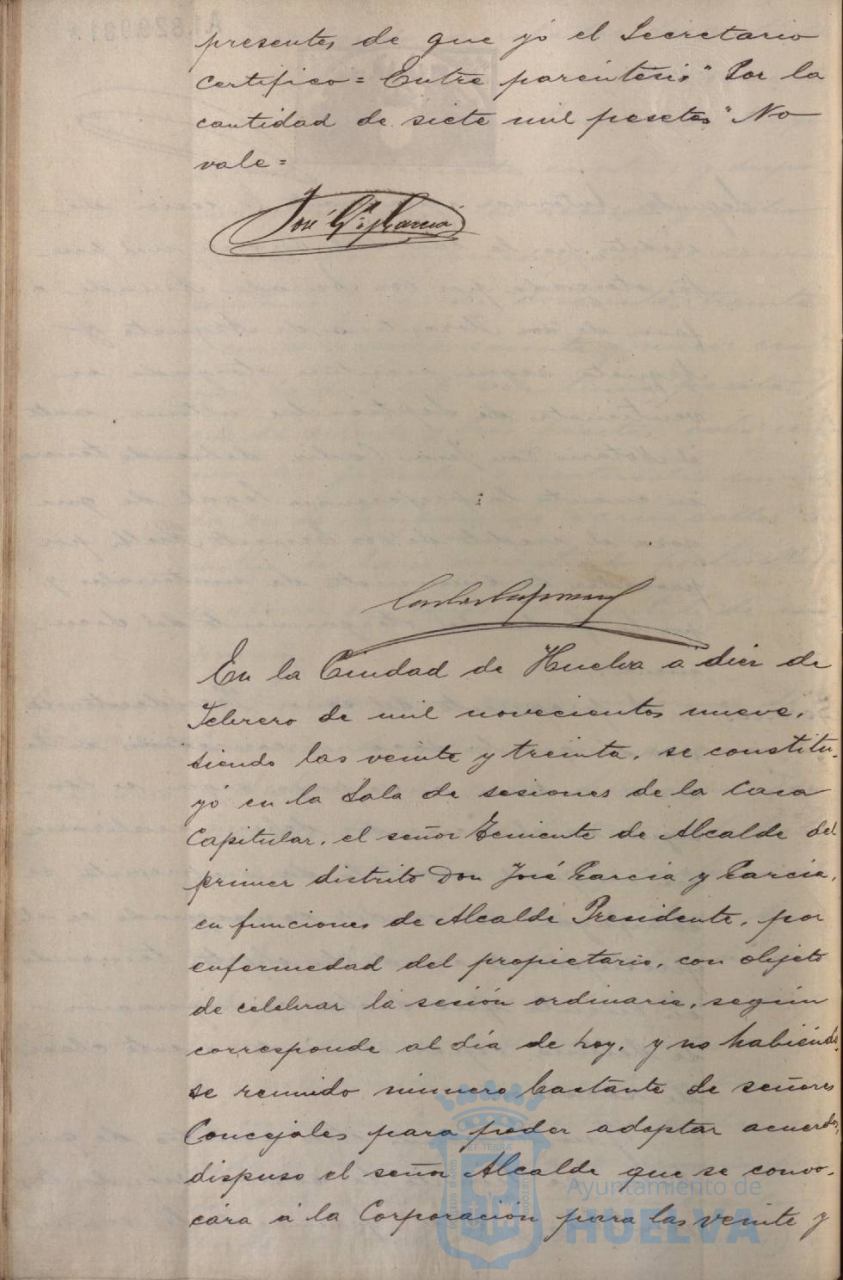 presentes de que yó el Secretario
certifico = Entre paréntesis " Por la
cantidad de siete mil pesetas " No
vale =
José Gª y García
En la Ciudad de Huelva a diez de
Febrero de mil novecientos nueve,
siendo las veinte y treinta, se constitu-
yó en la Sala de sesiones de la Casa
Capitular, el señor Teniente de Alcalde del
primer distrito Don José Garcia y Garcia,
en funciones de Alcalde Presidente, por
enfermedad del propietario, con objeto
de celebrar la sesión ordinaria, según
corresponde al día de hoy, y no habiendo-
se reunido número bastante de señores
Concejales para poder adoptar acuerdos,
dispuso el señor Alcalde que se convo-
cara á la Corporación para las veinte y
Ayuntamiento de
HUELVA